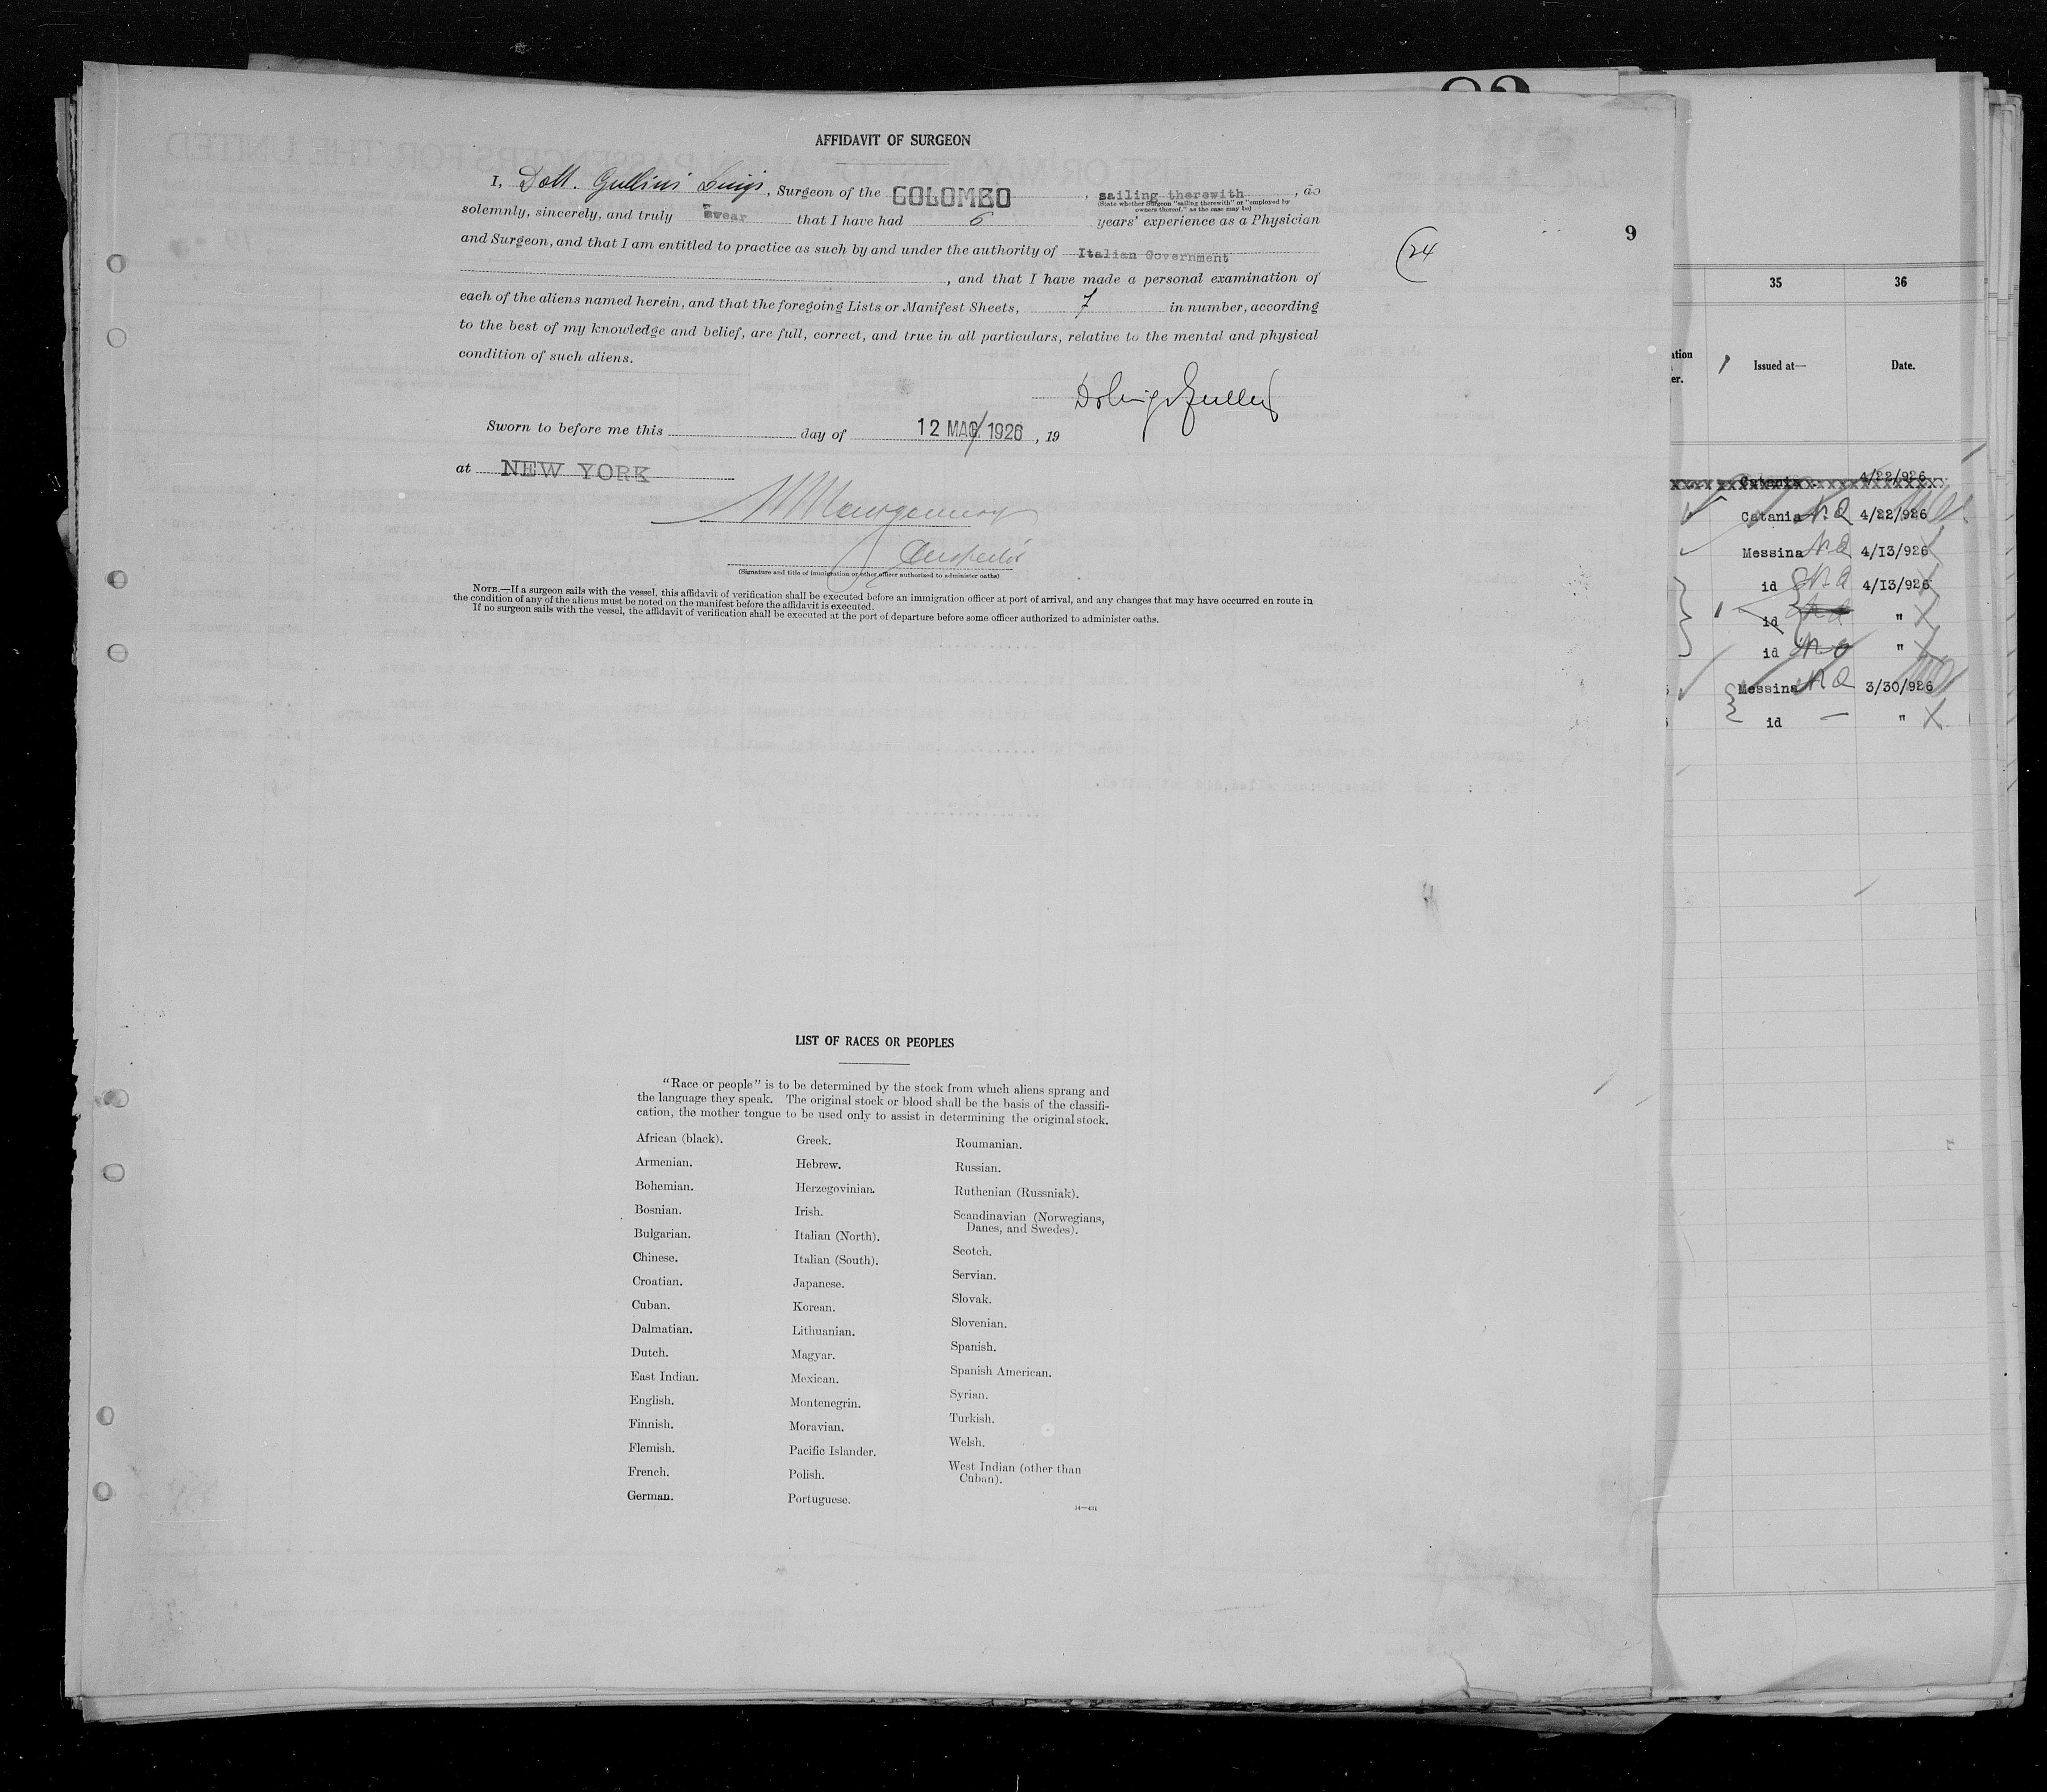 AFFIDAVIT OF SURGEON
I, Dott. Gullini Luigi, Surgeon of the COLOMBO, sailing therewith, do
(State whether Surgeon "sailing therewith" or "employed by
owners thereof," as the case may be)
solemnly, sincerely, and truly swear that I have had 6 years' experience as a Physician
and Surgeon, and that I am entitled to practice as such by and under the authority of Italian Government
, and that I have made a personal examination of
each of the aliens named herein, and that the foregoing Lists or Manifest Sheets, 7 in number, according
to the best of my knowledge and belief, are full, correct, and true in all particulars, relative to the mental and physical
condition of such aliens.
Sworn to before me this day of 12 MAG 1926, 19
at NEW YORK
Inspector
(Signature and title of immigration or other officer authorized to administer oaths)
NOTE.—If a surgeon sails with the vessel, this affidavit of verification shall be executed before an immigration officer at port of arrival, and any changes that may have occurred en route in
the condition of any of the aliens must be noted on the manifest before the affidavit is executed.
If no surgeon sails with the vessel, the affidavit of verification shall be executed at the port of departure before some officer authorized to administer oaths.
24
9
LIST OF RACES OR PEOPLES
"Race or people" is to be determined by the stock from which aliens sprang and
the language they speak. The original stock or blood shall be the basis of the classifi-
cation, the mother tongue to be used only to assist in determining the original stock.
African (black).
Armenian.
Bohemian.
Bosnian.
Bulgarian.
Chinese.
Croatian.
Cuban.
Dalmatian.
Dutch.
East Indian.
English.
Finnish.
Flemish.
French.
German.
Greek.
Hebrew.
Herzegovinian.
Irish.
Italian (North).
Italian (South).
Japanese.
Korean.
Lithuanian.
Magyar.
Mexican.
Montenegrin.
Moravian.
Pacific Islander.
Polish.
Portuguese.
Roumanian.
Russian.
Ruthenian (Russniak).
Scandinavian (Norwegians,
Danes, and Swedes).
Scotch.
Servian.
Slovak.
Slovenian.
Spanish.
Spanish American.
Syrian.
Turkish.
Welsh.
West Indian (other than
Cuban).
14—431
35 36
Issued at— Date.
Catania 4/22/926
Catania 4/22/926
Messina 4/13/926
id 4/13/926
id "
id "
Messina 3/30/926
id "